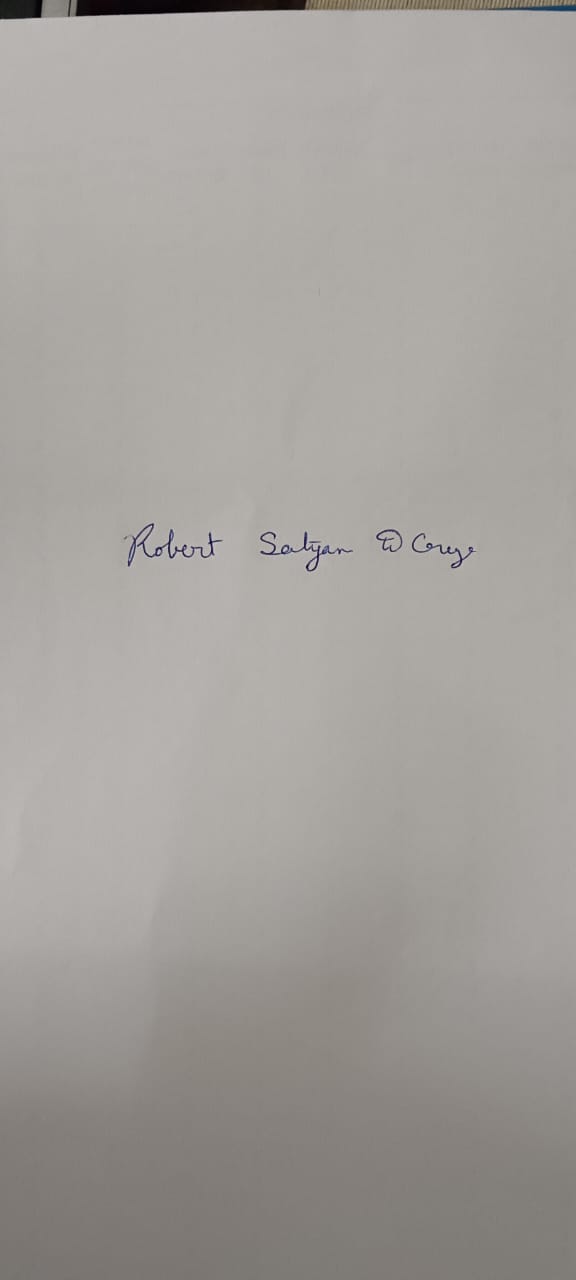 Robert Satyan D Cruze